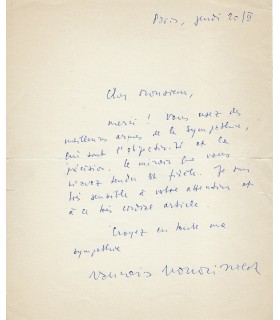 Paris, jeudi 20/II
Cher Monsieur,
merci ! Vous usez des
meilleures armes de la sympathie,
qui sont l'objectivité et la
précision. Le miroir que vous
m'avez tendu est fidèle. Je suis
très sensible à votre attention et
à ce si cordial article
Croyez en toute ma
sympathie